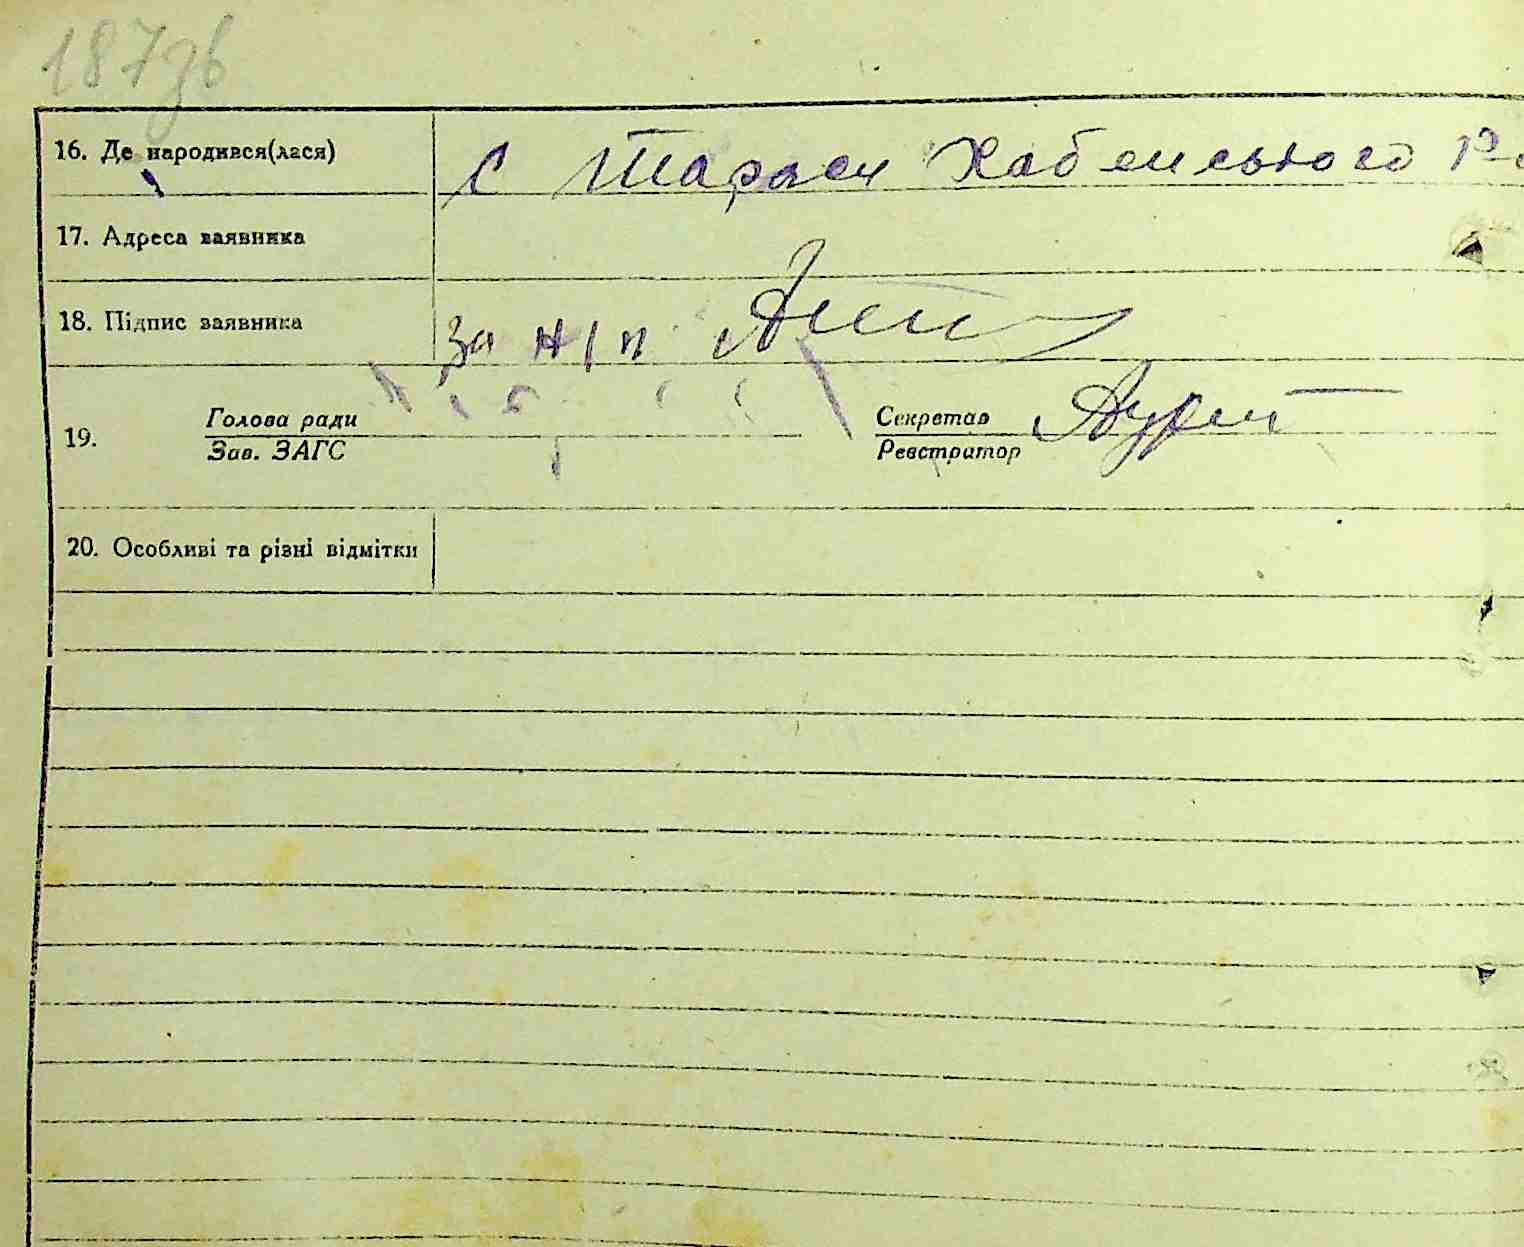 187зв
16. Де народився(лася) с Тараси Хабенського р-
17. Адреса заявника
18. Підпис заявника за н/п
Голова ради Секретар
19.
Зав. ЗАГС Реєстратор
20. Особливі та різні відмітки